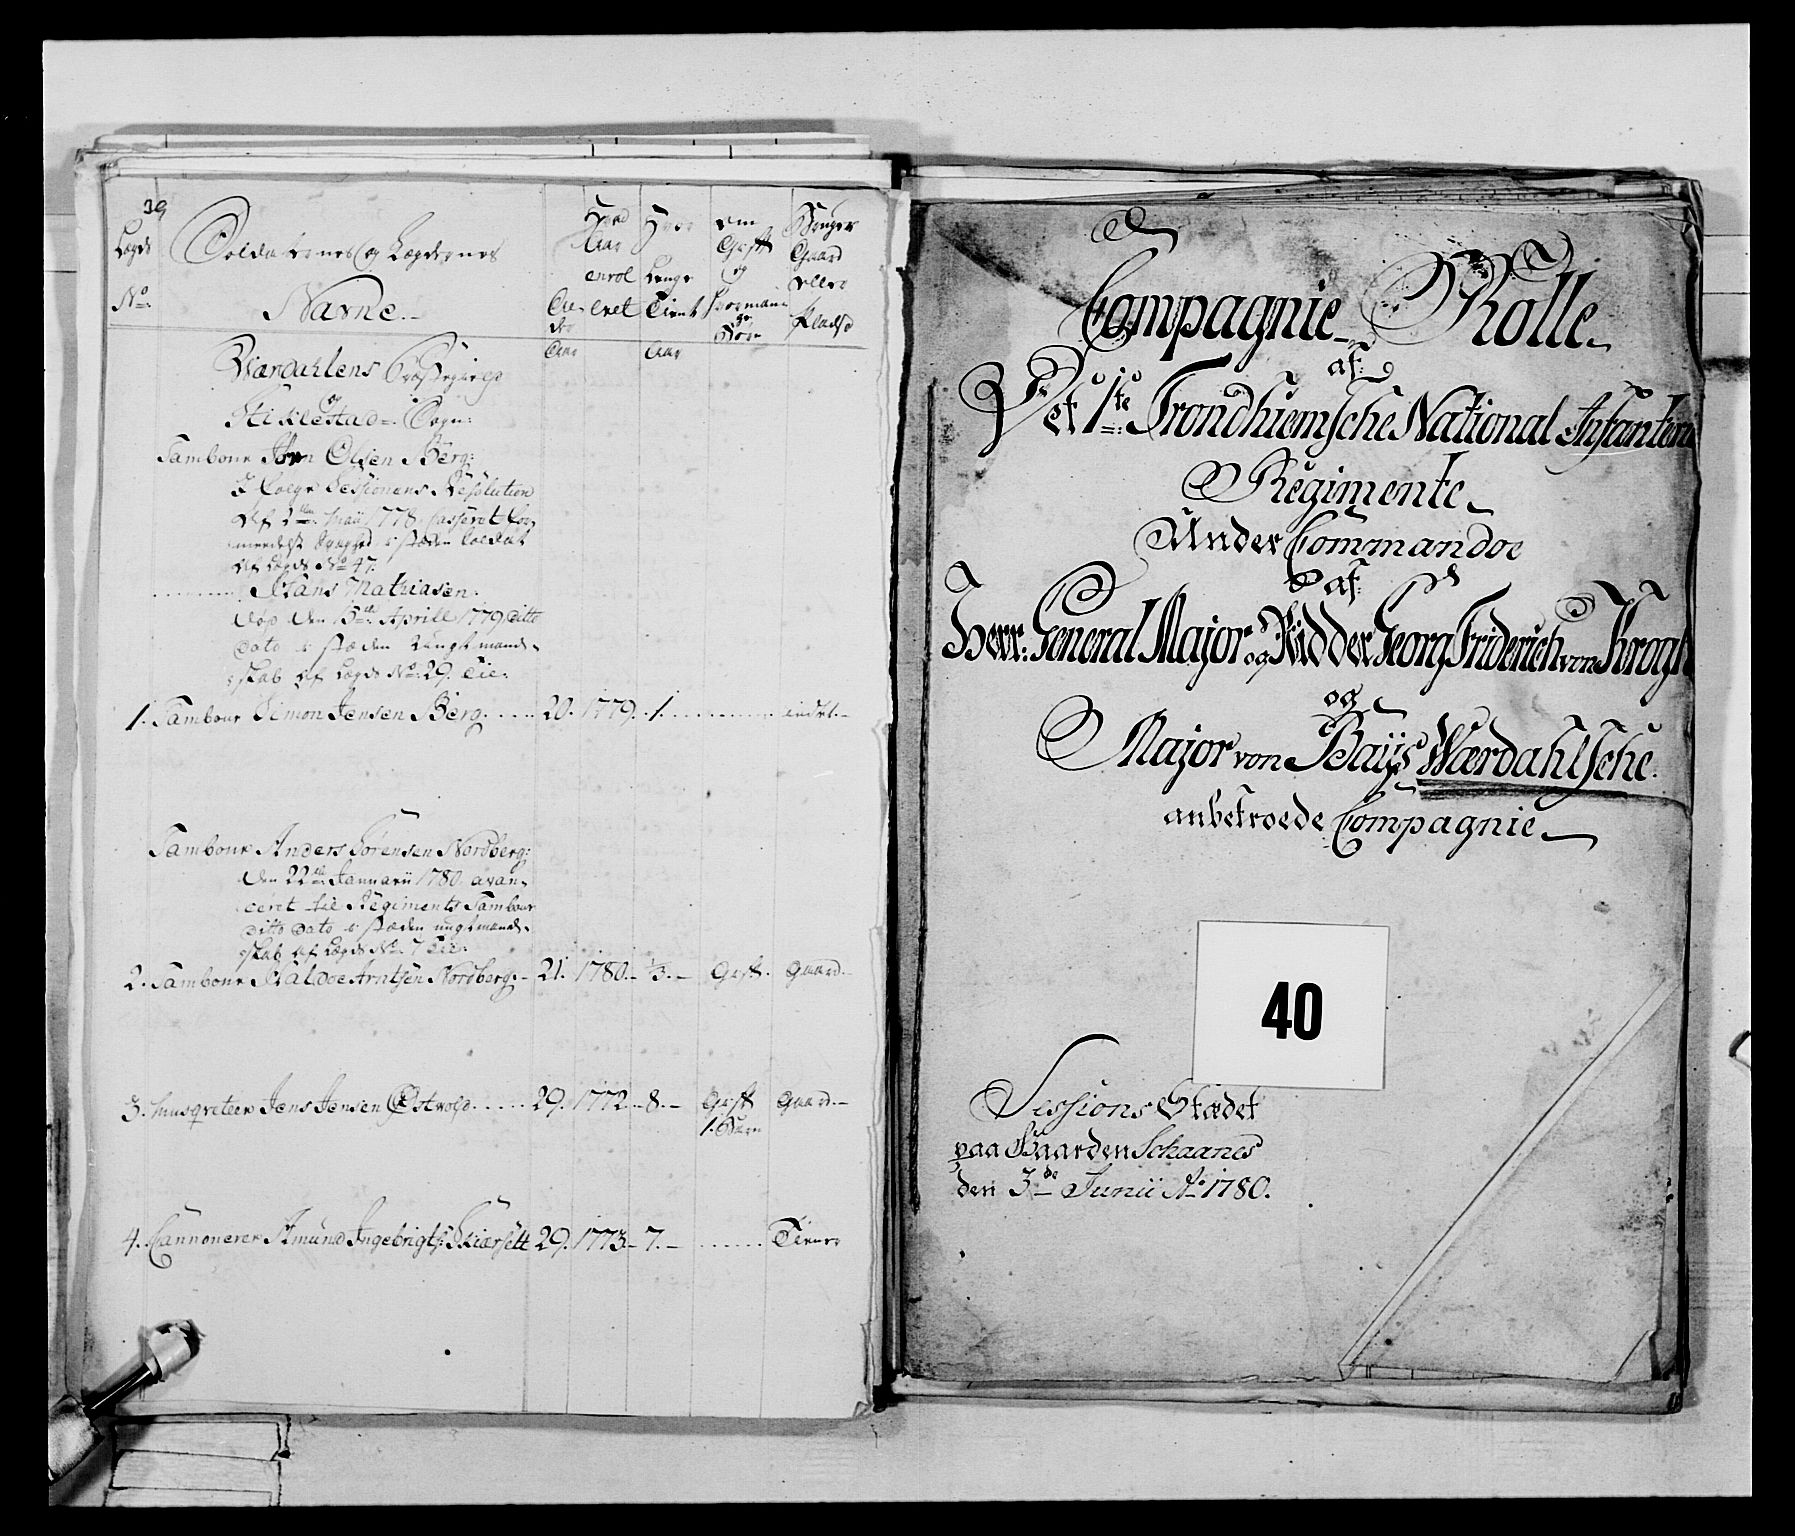 39
Lægds No: Soldaternes og Lægdernes Navne.
Alder Aar
Hvad Aar enrolleret
Hvor Længe Tient Aar
om Gift og hvormange Børn
Bruger Gaard eller Pladsd
Værdahlens Præstegield
og
Stiklestad Sogn:
Tambour Olsen Berg:
I Følge Sessionens Resolution
af Maii 1778. Casseret for-
i stæden Soldat
af Lægd No 47.
Hans Mathiasen.
død den 15de Aprill 1779 Ditto
Dato i stæden ungt mand-
skab af Lægd No: 29.
1. Tambour Simon Jensen Berg. 20. 1779. 1. indet.
Tambour Anders Sørensen Nordberg:
den 22de Januarii 1780. avan-
ceret til Regiments Tambour
ditto Dato i stæden ungt mand-
skab af Lægd No 7
2. Tambour Arntsen Nordberg. 21. 1780. 1/3. Gift. Gaard.
3. Musqveteer Jens Jensen Østvold 29. 1772. 8. Gift Gaard.
1. Barn
4. Cannonerer Amund Ingebrigts: Skiærsett 29. 1773. 7. Tiener
Compagnie Rolle.
af
Det 1te Trondhiemsche National Infanterie
Regimente
Under Commandoe
af
Herr: General Major og Ridder Georg Friderich von Krogh
og
Major von Baÿs Wærdahlsche.
anbetroede Compagnie
40
Sessions Stædet
paa Gaarden Schaanes
den 3de Junii Ao 1780.